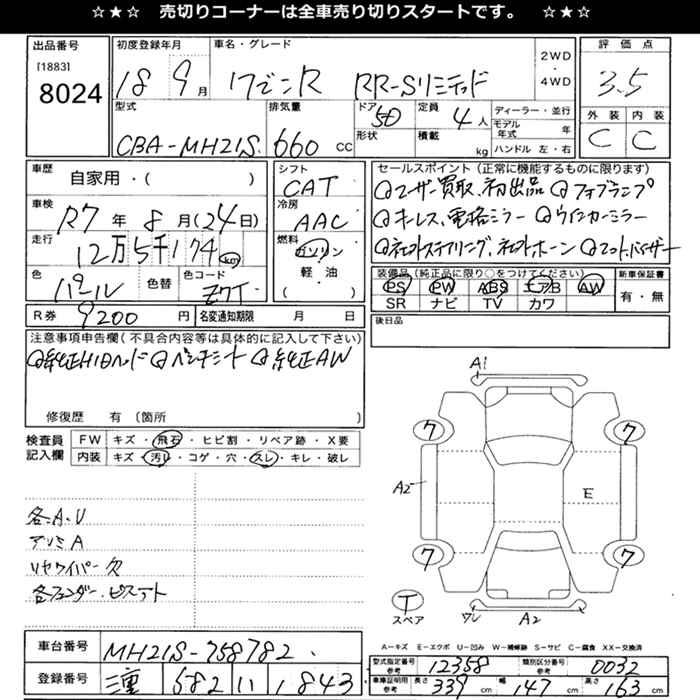 ☆★☆ 売切りコーナーは全車売り切りスタートです。 ☆★☆
出品番号
[1883]
8024
初度登録年月
18 9月
車名・グレード
ワゴンR RR-Sリミテッド
2WD
・
4WD
評価点
3.5
外装 内装
C C
型式
CBA-MH21S
排気量
660 CC
ドア
5D
形状
定員
4人
積載
kg
ディーラー・並行
モデル年式 年
ハンドル 左・右
車歴
自家用・( )
車検
R7年 8月(24日)
走行
12万5千174km
色
パール
色替
色コード
ZWT
シフト
CAT
冷房
AAC
燃料
ガソリン
軽・油
( )
セールスポイント(正常に機能するものに限ります)
◎ユーザー買取、初出品 ◎フォグランプ
◎キーレス、電格ミラー ◎ウインカーミラー
◎社外ステアリング、社外ホーン ◎マット、バイザー
装備品(純正品に限り○をつけてください)
PS PW ABS エアB AW
SR ナビ TV カワ
新車保証書
有・無
R券 9200円
名変通知期限 月 日
後日品
注意事項申告欄(不具合内容等は具体的に記入して下さい)
◎純正HIDヘッド ◎ベンチシート ◎純正AW
修復歴 有(箇所 )
検査員記入欄
FW キズ・飛石・ヒビ割・リペア跡・X要
内装 キズ・汚レ・コゲ・穴・スレ・キレ・破レ
各A.U
アルミA
リヤワイパー欠
各フェンダービスナト
A1
ワ ワ
A2 E
ワ ワ
T
スペア
ワレ A2
A−キズ E−エクボ U−凹み W−補修跡 S−サビ C−腐食 XX−交換済
車台番号 MH21S-758782
登録番号 582 い 1843
型式指定番号 参考 12358
類別区分番号 参考 0032
車庫証明用 参考 長さ 339cm 幅 147cm 高さ 163cm